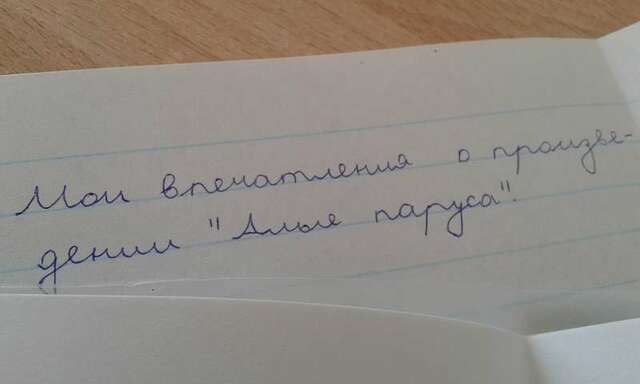 Мои впечатления о произве-
дении "Алые паруса".